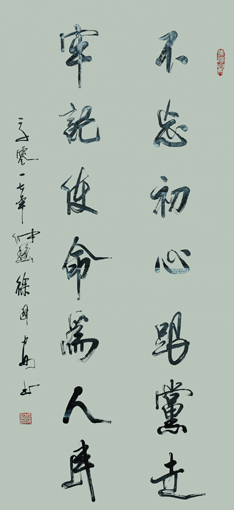 不忘初心跟黨走
牢記使命為人民
二零一七年仲秋徐國